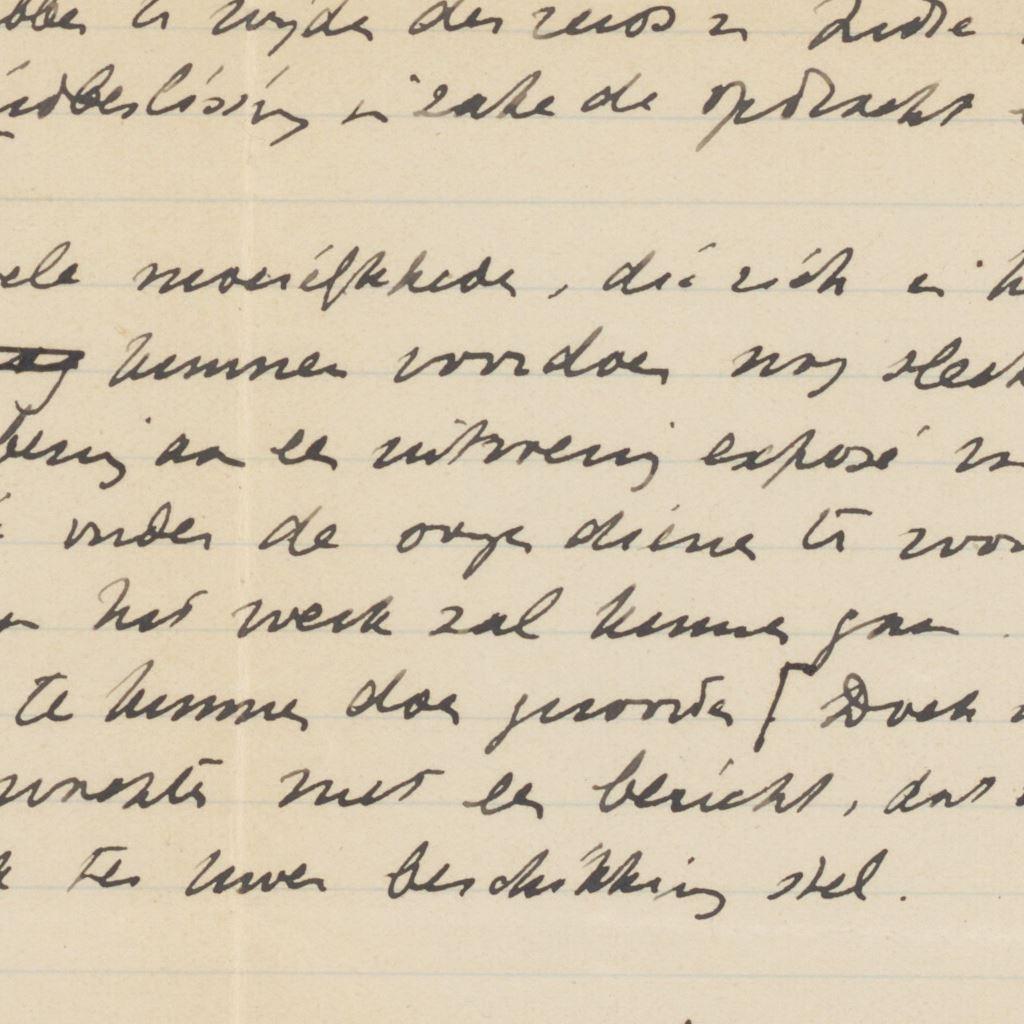 te wijden der reis
indbeslissing in zake de opdracht
moeielijkheden, die zich in
kunnen voordoen nog slech
aan een uitvoerig exposé
onder de oogen dienen te wor
het werk zal kunnen gaan.
te kunnen doen geworden [ Doch
wachten met een bericht, dat
ter uwer beschikking stel.